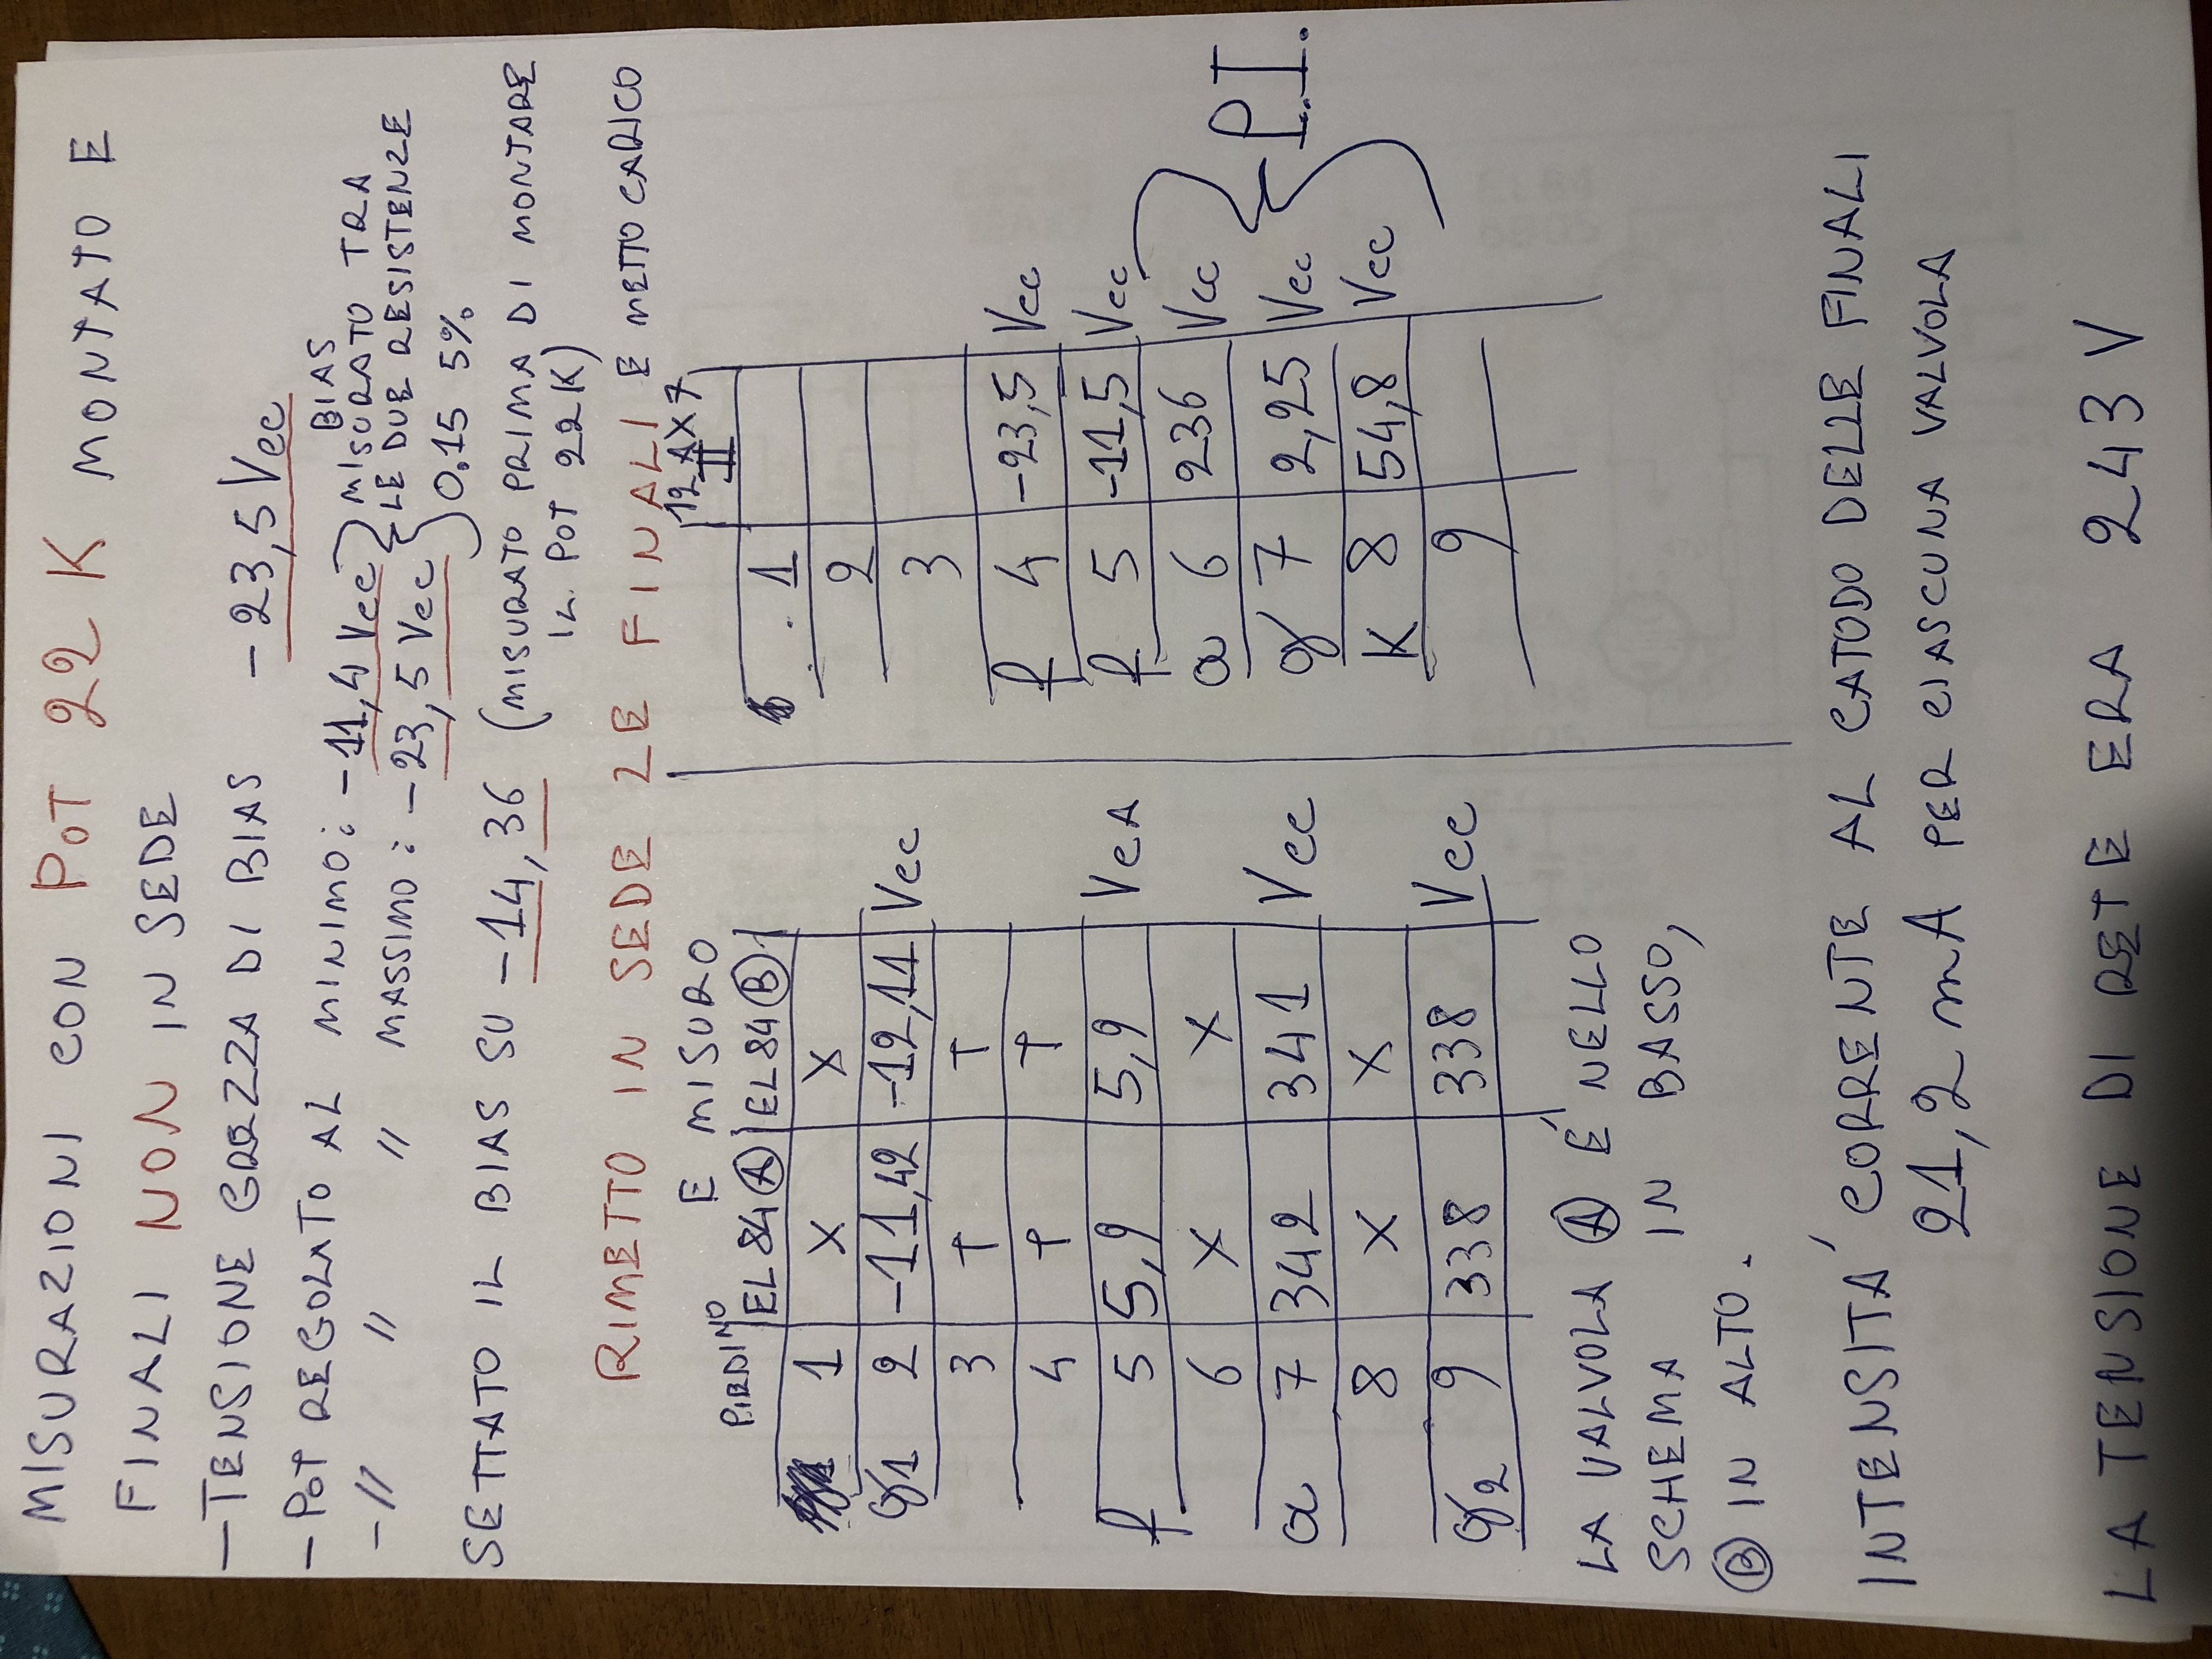 MISURAZIONI CON POT 22 K MONTATO E
FINALI NON IN SEDE
- TENSIONE GREZZA DI BIAS -23,5 Vcc
- POT REGOLATO AL MINIMO: -11,4 Vcc
- // // // MASSIMO: -23,5 Vcc
BIAS
MISURATO TRA
LE DUE RESISTENZE
0.15 5%
SETTATO IL BIAS SU -14,36 (MISURATO PRIMA DI MONTARE
IL POT 22 K)
RIMETTO IN SEDE 2E FINALI E METTO CARICO
E MISURO
PIEDINO EL84 (A) EL84 (B)
1 X X
g1 2 -11,42 -12,11 Vcc
3 + +
4 + +
f 5 5,9 5,9 VCA
6 X X
a 7 342 341 Vcc
8 X X
g2 9 338 338 Vcc
12AX7
II
1
2
3
f 4 -23,5 Vcc
f 5 -11,5 Vcc
a 6 236 Vcc
g 7 2,25 Vcc
K 8 54,8 Vcc
9
P.I.
LA VALVOLA (A) É NELLO
SCHEMA IN BASSO,
(B) IN ALTO.
INTENSITA' CORRENTE AL CATODO DELLE FINALI
21,2 mA PER CIASCUNA VALVOLA
LA TENSIONE DI RETE ERA 243 V